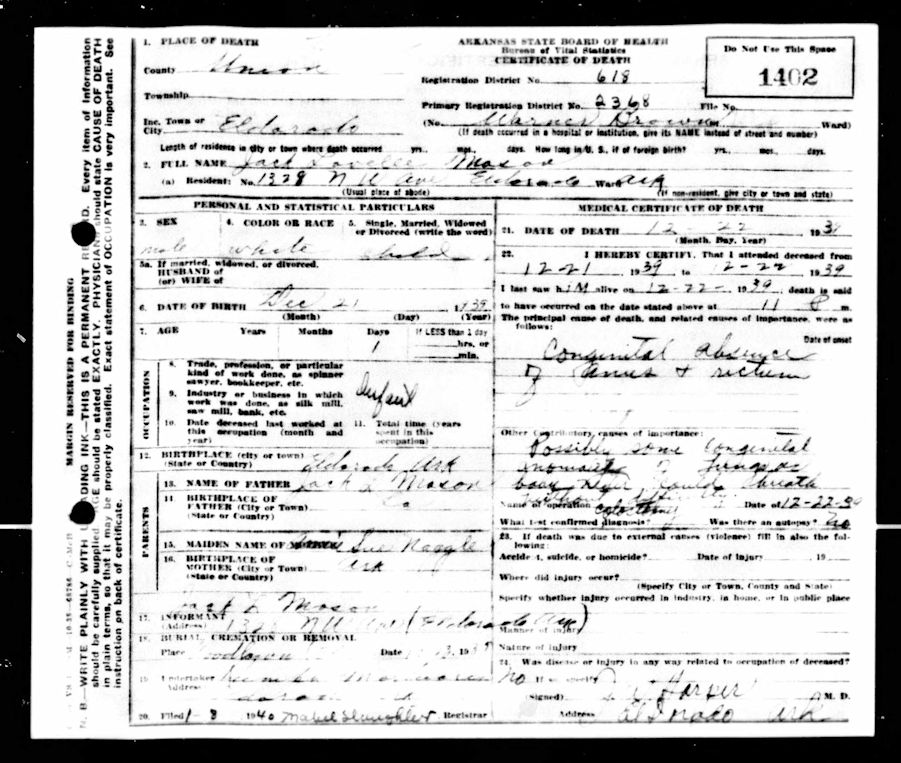 1. PLACE OF DEATH
County Union
Township
Inc. Town or City Eldorado
ARKANSAS STATE BOARD OF HEALTH
Bureau of Vital Statistics
CERTIFICATE OF DEATH
Registration District No. 618
Primary Registration District No. 2368 File No.
(No. Warner Brown Ward)
(If death occurred in a hospital or institution, give its NAME instead of street and number)
Do Not Use This Space
1402
Length of residence in city or town where death occurred yrs. mos. days. How long in U. S., if of foreign birth? yrs. mos. days.
2. FULL NAME Jack Lovelle Mason
(a) Resident: No. 1328 N W Ave Eldorado Ward Ark
(Usual place of abode) (If non-resident, give city or town and state)
PERSONAL AND STATISTICAL PARTICULARS
3. SEX 4. COLOR OR RACE 5. Single, Married, Widowed or Divorced (write the word)
male white child
5a. If married, widowed, or divorced,
HUSBAND of
(or) WIFE of
6. DATE OF BIRTH Dec 21 1939
(Month) (Day) (Year)
7. AGE Years Months Days If LESS than 1 day
1 hrs. or
min.
OCCUPATION
8. Trade, profession, or particular
kind of work done, as spinner
sawyer, bookkeeper, etc.
9. Industry or business in which
work was done, as silk mill,
saw mill, bank, etc.
Infant
10. Date deceased last worked at
this occupation (month and
year)
11. Total time (years
spent in this
occupation)
12. BIRTHPLACE (city or town) Eldorado Ark
(State or Country)
PARENTS
13. NAME OF FATHER Jack L Mason
14. BIRTHPLACE OF
FATHER (City or Town)
(State or Country)
15. MAIDEN NAME OF MOTHER Sue Naggle
16. BIRTHPLACE OF
MOTHER (City or Town) Ark
(State or Country)
Jack L Mason
17. INFORMANT
(Address) N W Ave (Eldorado Ark)
18. BURIAL, CREMATION OR REMOVAL
Place Woodlawn Date
19. Undertaker
Address
20. Filed 1-3 1940 Mabel Slaughter Registrar
MEDICAL CERTIFICATE OF DEATH
21. DATE OF DEATH 12 - 22 193
(Month, Day, Year)
22. I HEREBY CERTIFY, That I attended deceased from
12-21, 1939 to 12-22, 1939
I last saw him alive on 12-22-, 1939, death is said
to have occurred on the date stated above at 11 P m.
The principal cause of death, and related causes of importance, were as
follows: Date of onset
Congenital absence
of anus & rectum
Other Contributory causes of importance:
Possibly some congenital
of lungs as
baby never could breath
without difficulty
Name of operation colostomy Date of 12-22-39
What test confirmed diagnosis? Was there an autopsy? No
23. If death was due to external causes (violence) fill in also the following:
Accident, suicide, or homicide? Date of injury 19
Where did injury occur?
(Specify City or Town, County and State)
Specify whether injury occurred in industry, in home, or in public place
Manner of injury
Nature of injury
24. Was disease or injury in any way related to occupation of deceased?
No If so specify
(Signed) Harper M. D.
Address El Dorado Ark
MARGIN RESERVED FOR BINDING
N. B.—WRITE PLAINLY WITH UNFADING INK—THIS IS A PERMANENT RECORD. Every item of Information
should be carefully supplied. AGE should be stated EXACTLY. PHYSICIANS should state CAUSE OF DEATH
in plain terms, so that it may be properly classified. Exact statement of OCCUPATION is very important. See
instruction on back of certificate.